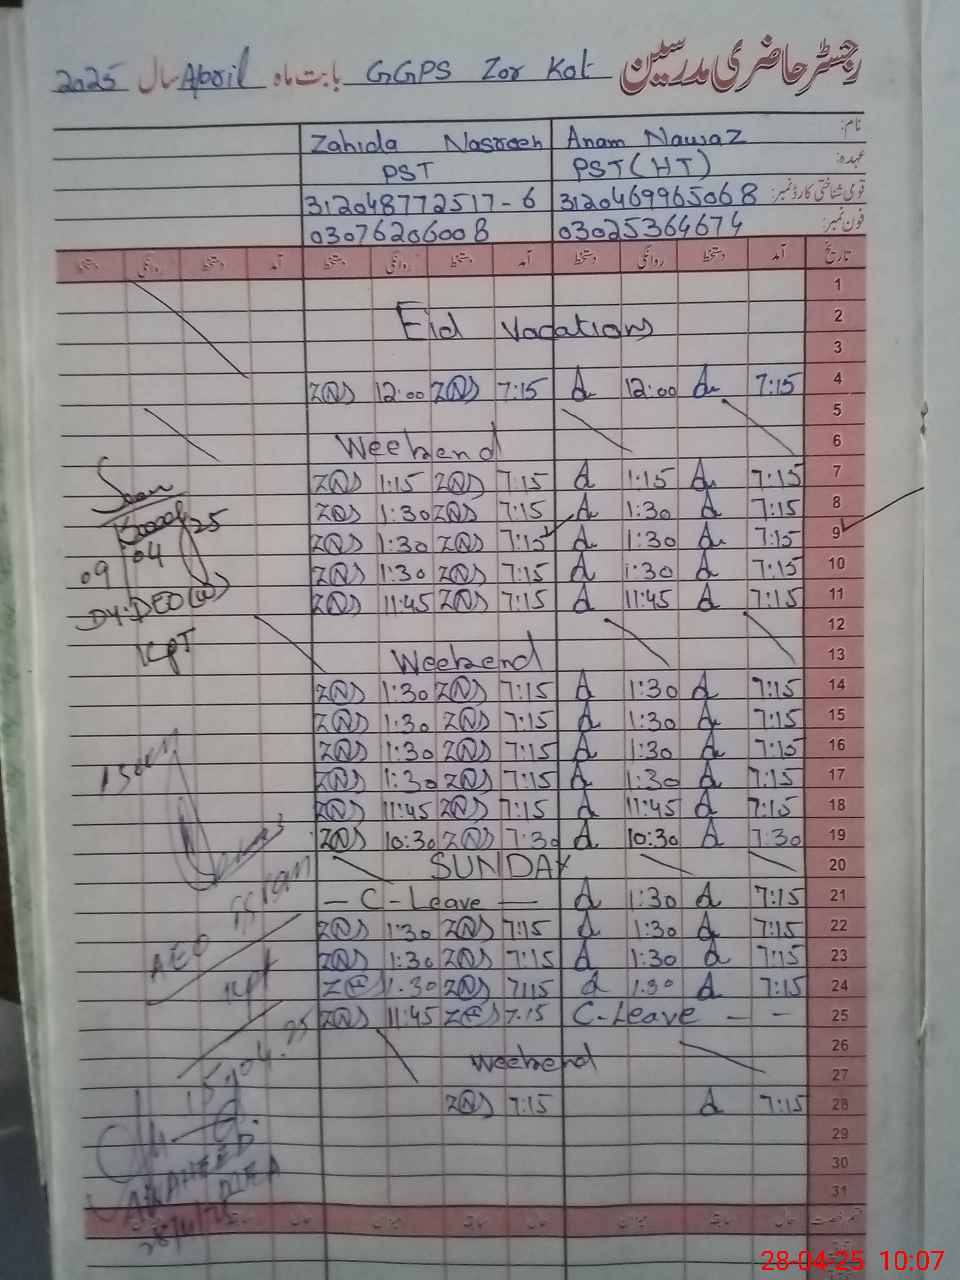 رجسٹر حاضری مدرسین GGPS Zor Kot بابت ماہ April سال 2025
نام: Anam Nawaz Zahida Nasreen
عہدہ: PST (HT) PST
قومی شناختی کارڈ نمبر: 312046996506 8 312048772517-6
فون نمبر: 03025364674 03076206008
تاریخ آمد دستخط روانگی دستخط آمد دستخط روانگی دستخط آمد دستخط روانگی دستخط
1
2 Eid Vacations
3
4 7:15 A 12:00 A 7:15 Z(N) 12:00 Z(N)
5
6 Weekend
7 7:15 A 1:15 A 7:15 Z(N) 1:15 Z(N)
8 7:15 A 1:30 A 7:15 Z(N) 1:30 Z(N)
9 7:15 A 1:30 A 7:15 Z(N) 1:30 Z(N)
10 7:15 A 1:30 A 7:15 Z(N) 1:30 Z(N)
11 7:15 A 11:45 A 7:15 Z(N) 11:45 Z(N)
Seen
09 04 25
Dy.DEO (W)
KPT
12
13 Weekend
14 7:15 A 1:30 A 7:15 Z(N) 1:30 Z(N)
15 7:15 A 1:30 A 7:15 Z(N) 1:30 Z(N)
16 7:15 A 1:30 A 7:15 Z(N) 1:30 Z(N)
17 7:15 A 1:30 A 7:15 Z(N) 1:30 Z(N)
18 7:15 A 11:45 A 7:15 Z(N) 11:45 Z(N)
19 7:30 A 10:30 A 7:30 Z(N) 10:30 Z(N)
20 SUNDAY
21 7:15 A 1:30 A — C-Leave —
22 7:15 A 1:30 A 7:15 Z(N) 1:30 Z(N)
23 7:15 A 1:30 A 7:15 Z(N) 1:30 Z(N)
24 7:15 A 1:30 A 7:15 Z(N) 1:30 Z(N)
25 C-Leave - - 7:15 Z(N) 11:45 Z(N)
AEO
KPT
15.04.25
26
27 Weekend
28 7:15 A 7:15 Z(N)
29
30
31
28-04-25 10:07